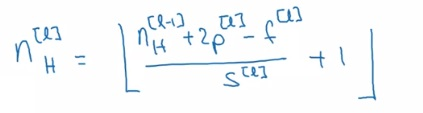 n_H^{[l]} = ⌊ \frac{n_H^{[l-1]} + 2p^{[l]} - f^{[l]}}{s^{[l]}} + 1 ⌋